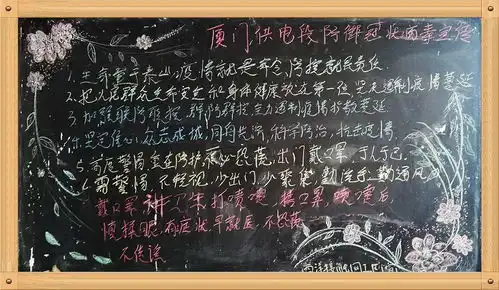 厦门供电段防御冠状病毒宣传
1.生命重于泰山,疫情就是命令,防控就是责任
2.把人民群众生命安全和身体健康放在第一位,坚决遏制疫情蔓延
3.加强联防联控,群防群控,全力遏制疫情扩散蔓延
4.坚定信心,众志成城,同舟共济,科学防治,抗击疫情
5.高度警惕重在防护,不必恐慌,出门戴口罩,于人于己
6.需警惕,不轻视,少出门,少聚集,勤洗手,勤通风
戴口罩,讲卫生,打喷嚏,捂口鼻,喷嚏后
慎揉眼,有症状早就医,不恐慌
不传谣